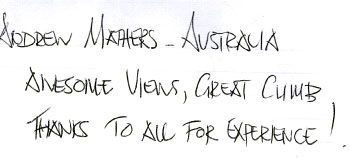 ANDREW MATHERS - AUSTRALIA
AWESOME VIEWS, GREAT CLIMB
THANKS TO ALL FOR EXPERIENCE!